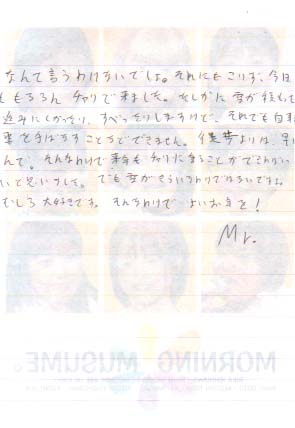 なんて言うわけないでしょ。それにもこりず、今日
ももちろん チャリで来ました。たしかに 雪が積もって
進みにくかったり、すべったりしますけど、それでも自転
車を手ばなすことができません。
んで。そんなわけで来年も チャリに乗ることができればい
いと思いました。でも雪がきらいなわけではないですよ。
むしろ 大好きです。そんなわけで よいお年を!
Mr.
MORNING MUSUME。